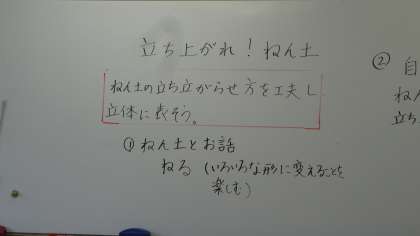 立ち上がれ！ねん土
ねん土の立ち立がらせ方を工夫し
立体に表そう。
① ねん土とお話
ねる（いろいろな形に変えることを
楽しむ）
② 自
ねん
立ち